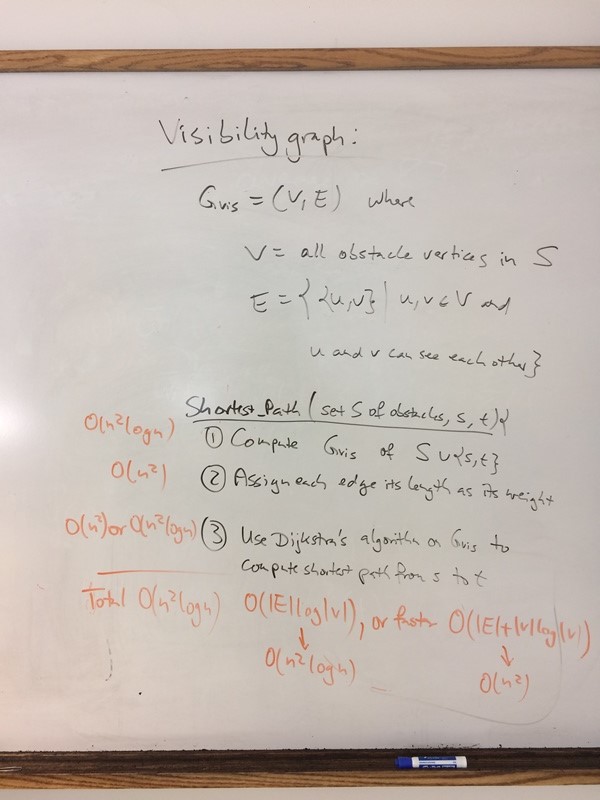 Visibility graph:
Gvis = (V, E) where
V = all obstacle vertices in S
E = { {u,v} | u,v ∈ V and
u and v can see each other}
Shortest_Path (set S of obstacles, s, t){
O(n²logn) ① Compute Gvis of S ∪ {s,t}
O(n²) ② Assign each edge its length as its weight
O(n²) or O(n²logn) ③ Use Dijkstra's algorithm on Gvis to
compute shortest path from s to t
Total O(n²logn) O(|E|log|V|), or faster O(|E|+|V|log|V|)
↓ ↓
O(n²logn) O(n²)